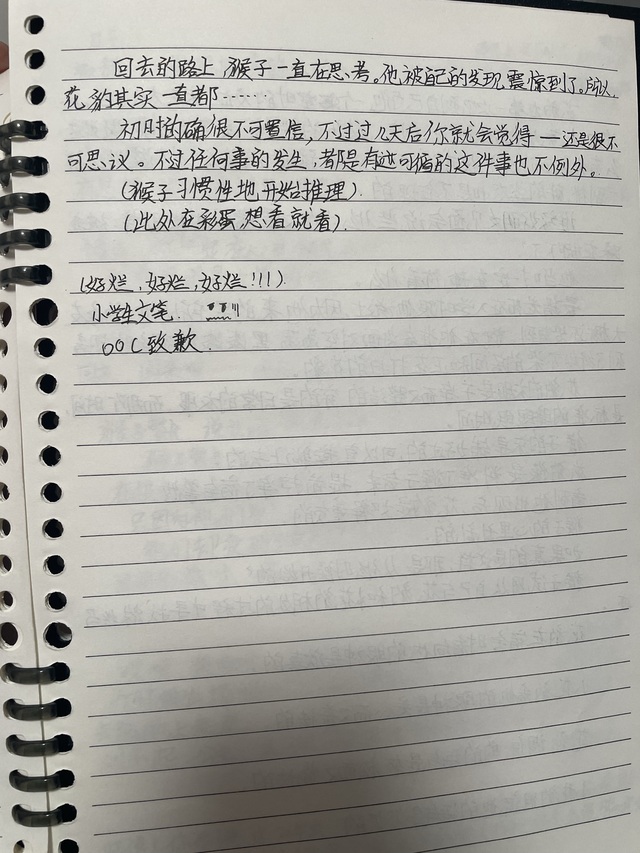 回去的路上,猴子一直在思考。他被自己的发现震惊到了。所以,
花豹其实一直都……
初时的确很不可置信,不过过几天后你就会觉得——还是很不
可思议。不过任何事的发生,都是有迹可循的这件事也不例外。
(猴子习惯性地开始推理).
(此处在彩蛋,想看就看).
(好烂,好烂,好烂!!!).
小学生文笔.
OOC致歉.